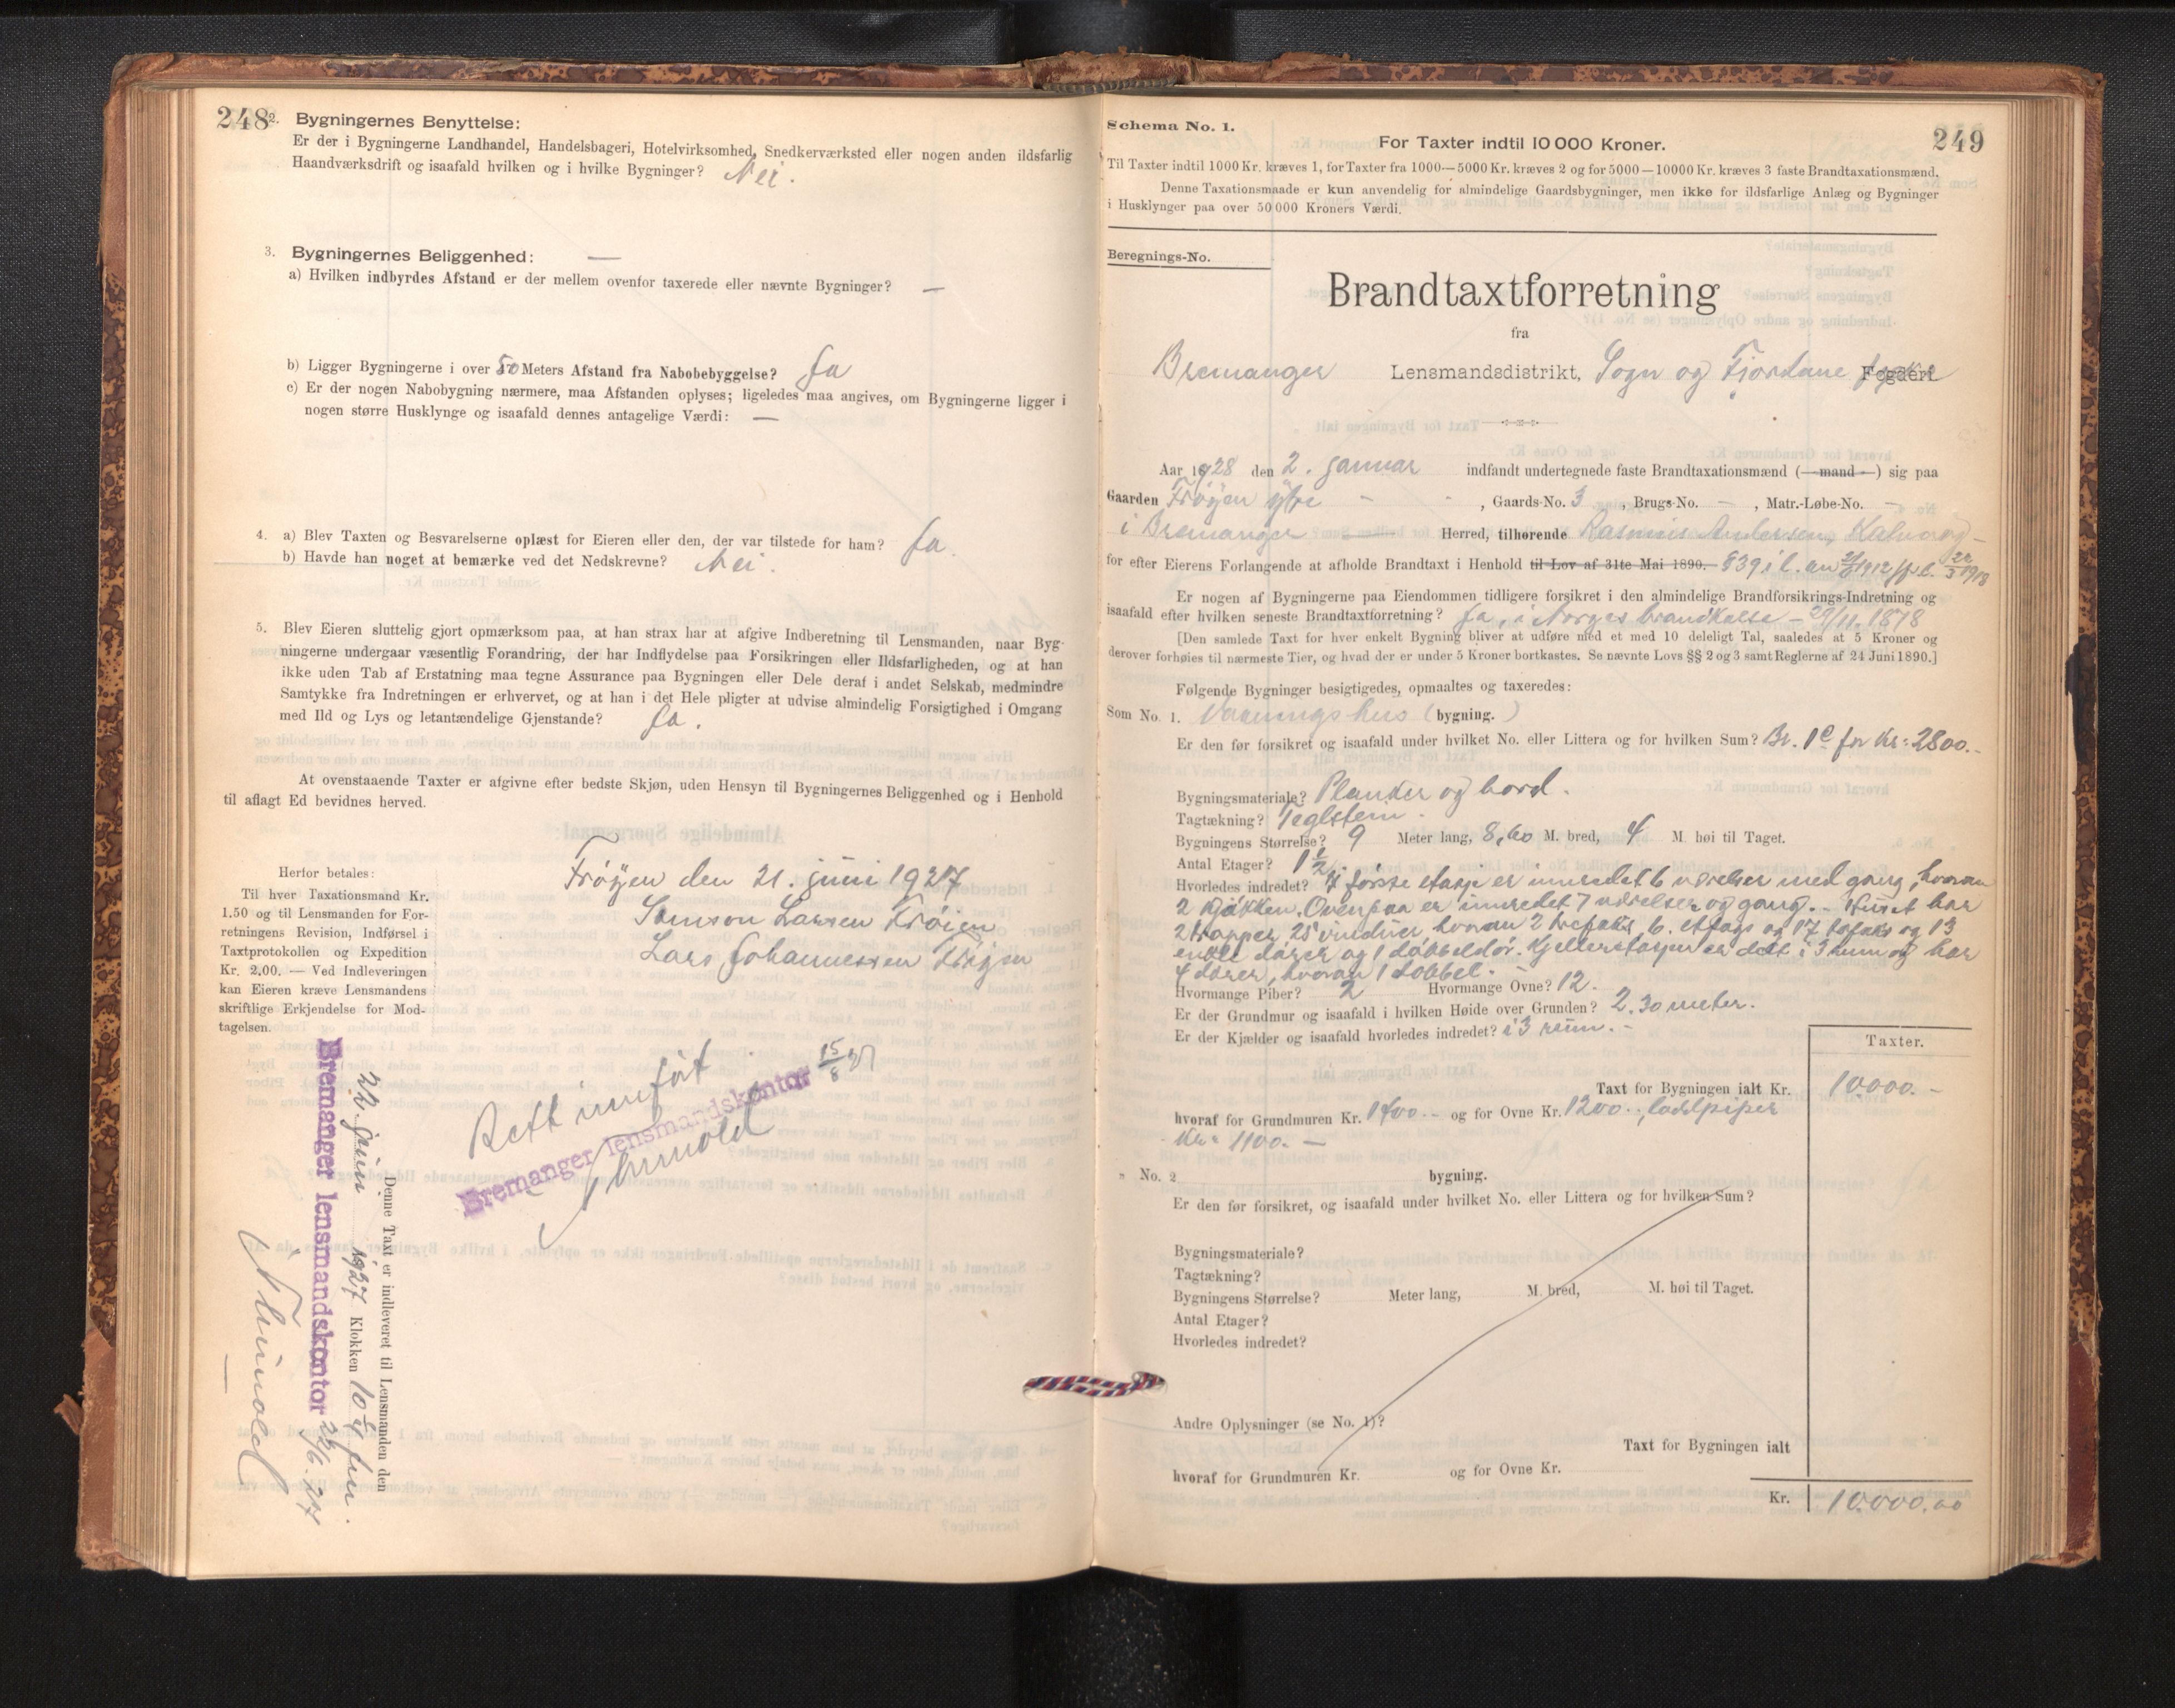 248
2. Bygningernes Benyttelse:
Er der i Bygningerne Landhandel, Handelsbageri, Hotelvirksomhed, Snedkerværksted eller nogen anden ildsfarlig
Haandværksdrift og isaafald hvilken og i hvilke Bygninger? Nei.
3. Bygningernes Beliggenhed: —
a) Hvilken indbyrdes Afstand er der mellem ovenfor taxerede eller nævnte Bygninger? —
b) Ligger Bygningerne i over 50 Meters Afstand fra Nabobebyggelse? Ja
c) Er der nogen Nabobygning nærmere, maa Afstanden oplyses; ligeledes maa angives, om Bygningerne ligger i
nogen større Husklynge og isaafald dennes antagelige Værdi: —
4. a) Blev Taxten og Besvarelserne oplæst for Eieren eller den, der var tilstede for ham? Ja.
b) Havde han noget at bemærke ved det Nedskrevne? Nei.
5. Blev Eieren sluttelig gjort opmærksom paa, at han strax har at afgive Indberetning til Lensmanden, naar Byg-
ningerne undergaar væsentlig Forandring, der har Indflydelse paa Forsikringen eller Ildsfarligheden, og at han
ikke uden Tab af Erstatning maa tegne Assurance paa Bygningen eller Dele deraf i andet Selskab, medmindre
Samtykke fra Indretningen er erhvervet, og at han i det Hele pligter at udvise almindelig Forsigtighed i Omgang
med Ild og Lys og letantændelige Gjenstande? Ja.
At ovenstaaende Taxter er afgivne efter bedste Skjøn, uden Hensyn til Bygningernes Beliggenhed og i Henhold
til aflagt Ed bevidnes herved.
Frøyen den 21. juni 1927
Samson Larsen Frøien
Lars Johannessen Frøyen
Herfor betales:
Til hver Taxationsmand Kr.
1.50 og til Lensmanden for For-
retningens Revision, Indførsel i
Taxtprotokollen og Expedition
Kr. 2.00. — Ved Indleveringen
kan Eieren kræve Lensmandens
skriftlige Erkjendelse for Mod-
tagelsen.
Rett innført 15/8 27
Bremanger lensmandskontor
Denne Taxt er indleveret til Lensmanden den
22. juni 1927 Klokken 10
Bremanger lensmandskontor 22/6.27
249
Schema No. 1.
For Taxter indtil 10 000 Kroner.
Til Taxter indtil 1000 Kr. kræves 1, for Taxter fra 1000—5000 Kr. kræves 2 og for 5000—10000 Kr. kræves 3 faste Brandtaxationsmænd.
Denne Taxationsmaade er kun anvendelig for almindelige Gaardsbygninger, men ikke for ildsfarlige Anlæg og Bygninger
i Husklynger paa over 50 000 Kroners Værdi.
Beregnings-No.
Brandtaxtforretning
fra
Bremanger Lensmandsdistrikt, Sogn og Fjordane fylke Fogderi
Aar 1928 den 2. januar indfandt undertegnede faste Brandtaxationsmænd (—mand—) sig paa
Gaarden Frøyen ytre - - , Gaards-No. 3 , Brugs-No. — , Matr.-Løbe-No. —
i Bremanger Herred, tilhørende Rasmus Andersen, Kalvaag —
for efter Eierens Forlangende at afholde Brandtaxt i Henhold til Lov af 31te Mai 1890. § 39 i l. av 1912 22/3 1918
Er nogen af Bygningerne paa Eiendommen tidligere forsikret i den almindelige Brandforsikrings-Indretning og
isaafald efter hvilken seneste Brandtaxtforretning? Ja, i Norges brandkasse — 29/11.1878
[Den samlede Taxt for hver enkelt Bygning bliver at udføre med et med 10 deleligt Tal, saaledes at 5 Kroner og
derover forhøies til nærmeste Tier, og hvad der er under 5 Kroner bortkastes. Se nævnte Lovs §§ 2 og 3 samt Reglerne af 24 Juni 1890.]
Følgende Bygninger besigtigedes, opmaaltes og taxeredes:
Som No. 1. Vaaningshus (bygning.)
Er den før forsikret og isaafald under hvilket No. eller Littera og for hvilken Sum? Br. 1 e for kr: 2800.-
Bygningsmateriale? Planker og bord.
Tagtækning? Teglstein.
Bygningens Størrelse? 9 Meter lang, 8,60 M. bred, 4 M. høi til Taget.
Antal Etager? 1 1/2.
Hvorledes indredet? I første etasje er innredet 6 værelser med gang, hvorav
2 kjøkken. Ovenpaa er innredet 7 værelser og gang. - Huset har
2 trapper, 25 vinduer hvorav 2 trefags, 6. etfags og 17 tofags og 13
enkle dører og 1 dobbeldør. Kjelleretasjen er delt i 3 rum og har
4 dører, hvorav 1 dobbel.
Hvormange Piber? 2 Hvormange Ovne? 12.
Er der Grundmur og isaafald i hvilken Høide over Grunden? 2.30 meter.
Er der Kjælder og isaafald hvorledes indredet? i 3 rum. -
Taxter.
Taxt for Bygningen ialt Kr. 10000. -
hvoraf for Grundmuren Kr. 1400 — og for Ovne Kr. 1200.-,
Kr: 1100. —
„ No. 2 bygning.
Er den før forsikret, og isaafald under hvilket No. eller Littera og for hvilken Sum?
Bygningsmateriale?
Tagtækning?
Bygningens Størrelse? Meter lang, M. bred, M. høi til Taget.
Antal Etager?
Hvorledes indredet?
Andre Oplysninger (se No. 1)?
Taxt for Bygningen ialt
hvoraf for Grundmuren Kr. og for Ovne Kr.
Kr. 10.000.00